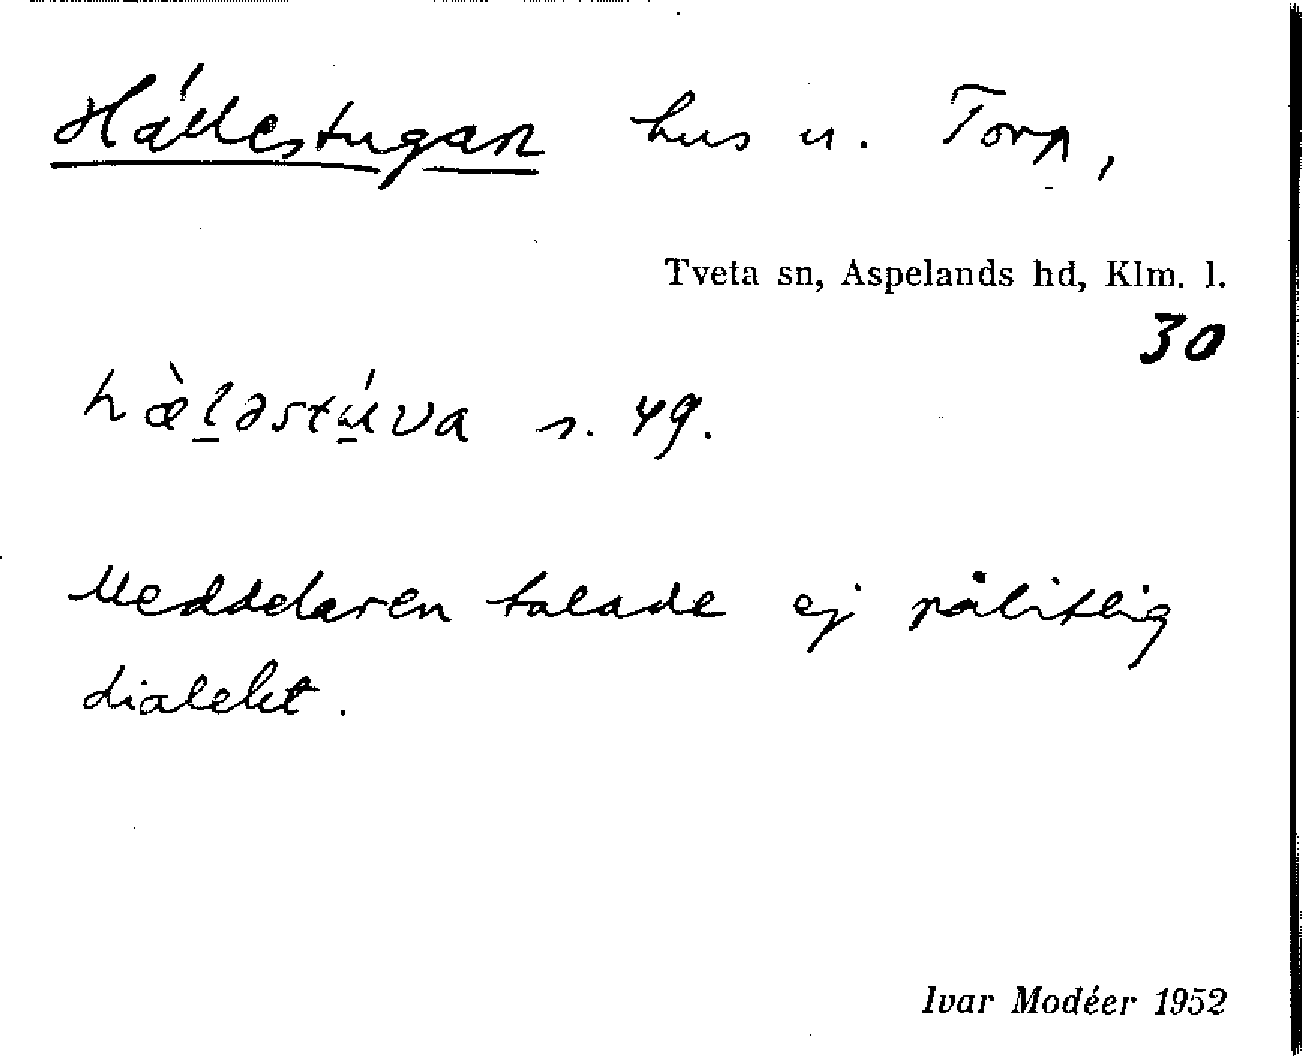 Hällestugan hus u. Torp,
Tveta sn, Aspelands hd, Klm. l.
30
hæ̀l̲əstú̲va s. 49.
Meddelaren talade ej pålitlig
dialekt.
Ivar Modéer 1952